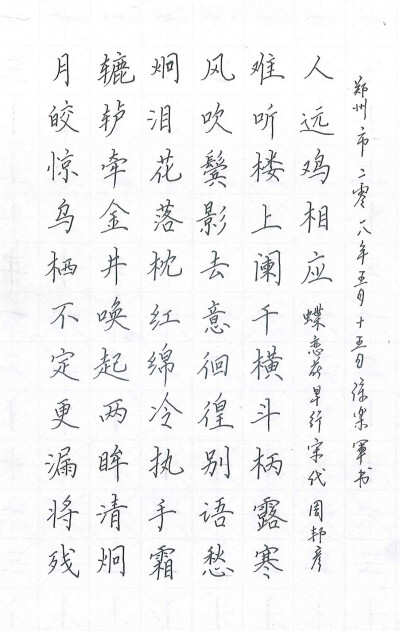 月皎惊乌栖不定更漏将残
辘轳牵金井唤起两眸清炯
炯泪花落枕红绵冷执手霜
风吹鬓影去意徊徨别语愁
难听楼上阑干横斗柄露寒
人远鸡相应 蝶恋花早行宋代周邦彦
郑州市二零一八年五月十五日徐军书